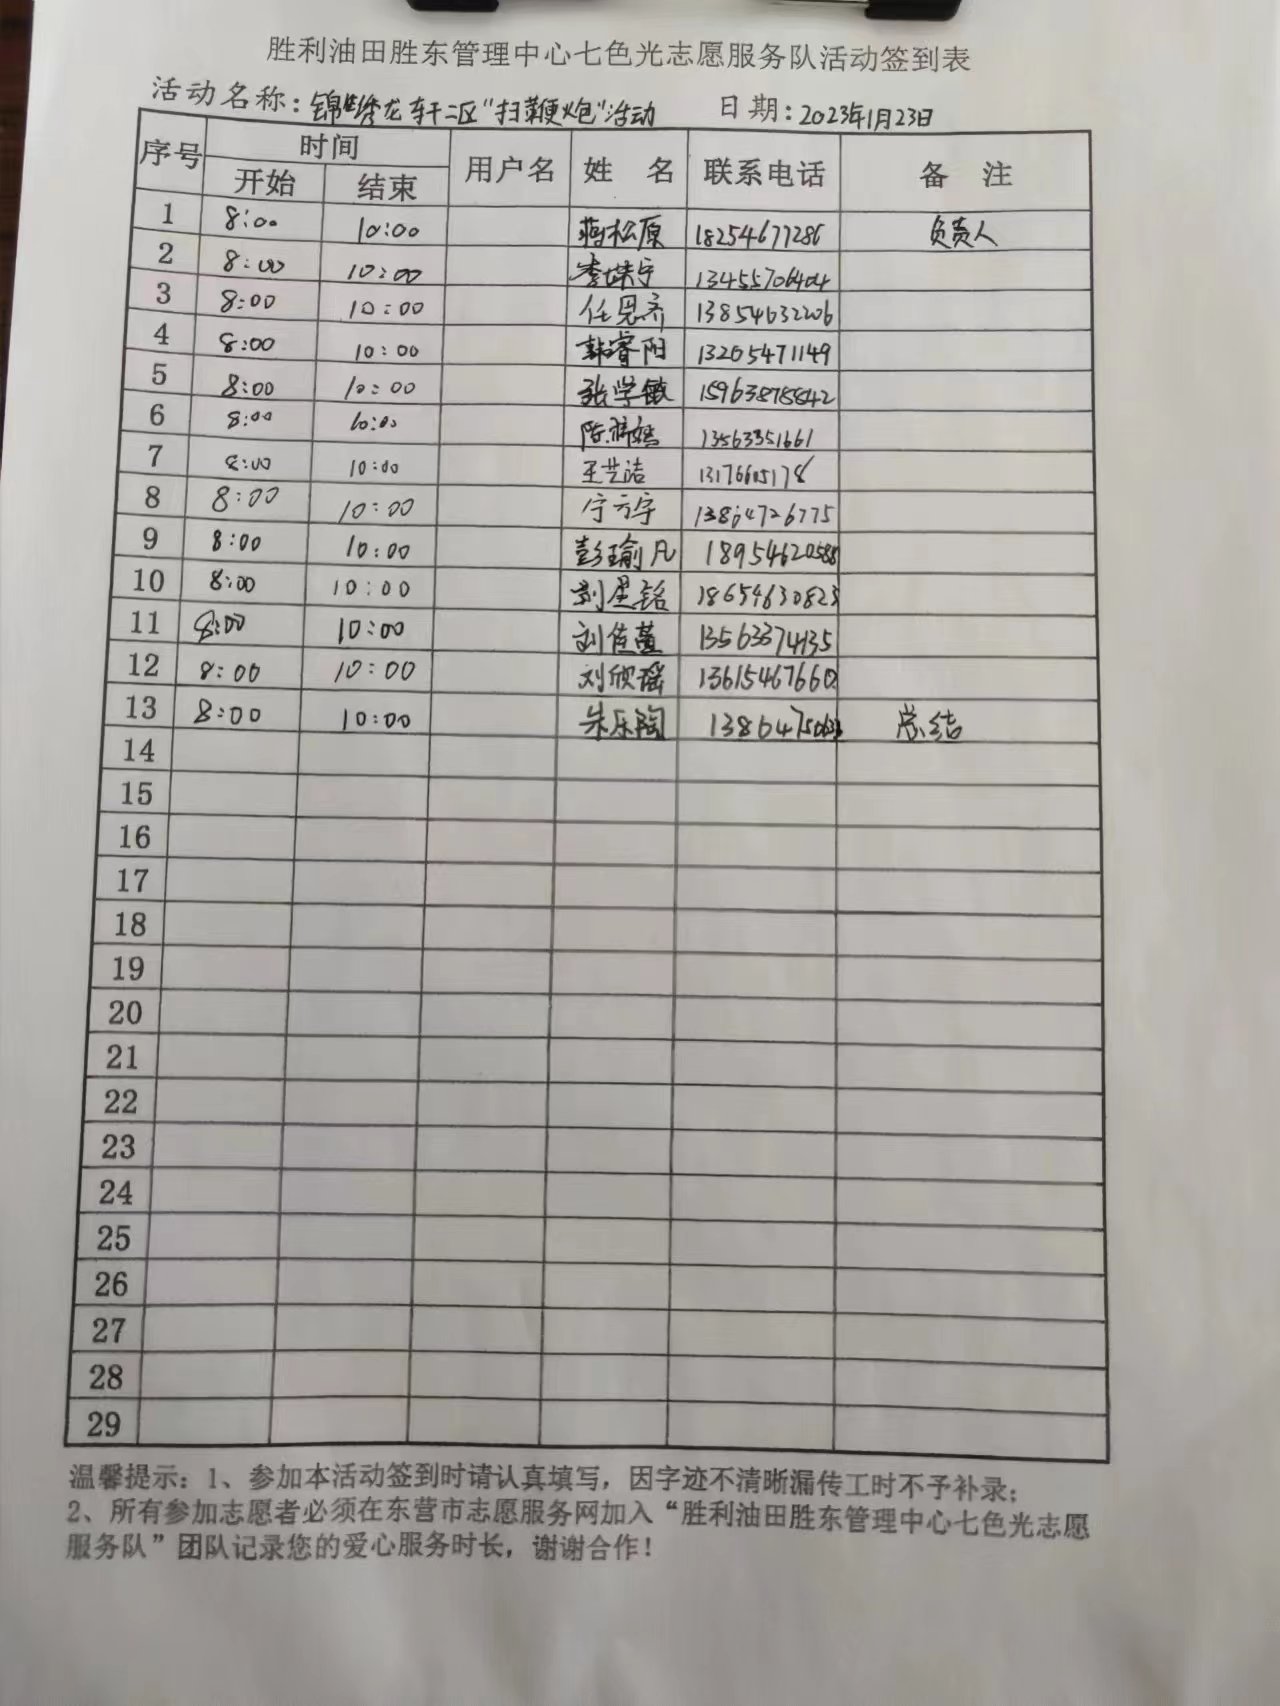 胜利油田胜东管理中心七色光志愿服务队活动签到表
活动名称：锦绣龙轩二区“扫鞭炮”活动 日期：2023年1月23日
序号 时间 用户名 姓 名 联系电话 备 注
开始 结束
1 8:00 10:00 蒋松原 18254677286 负责人
2 8:00 10:00 13455706404
3 8:00 10:00 任思齐 13854632206
4 8:00 10:00 韩睿阳 13205471149
5 8:00 10:00 张学敏 15963875842
6 8:00 10:00 13563351661
7 8:00 10:00 王艺洁
8 8:00 10:00 宁方宇 13864726775
9 8:00 10:00 彭瑜凡 18954620588
10 8:00 10:00 刘星铭 18654630823
11 8:00 10:00 刘佳萱
12 8:00 10:00 刘欣瑶 13615467660
13 8:00 10:00 朱乐陶 总结
14
15
16
17
18
19
20
21
22
23
24
25
26
27
28
29
温馨提示：1、参加本活动签到时请认真填写，因字迹不清晰漏传工时不予补录；
2、所有参加志愿者必须在东营市志愿服务网加入“胜利油田胜东管理中心七色光志愿
服务队”团队记录您的爱心服务时长，谢谢合作！